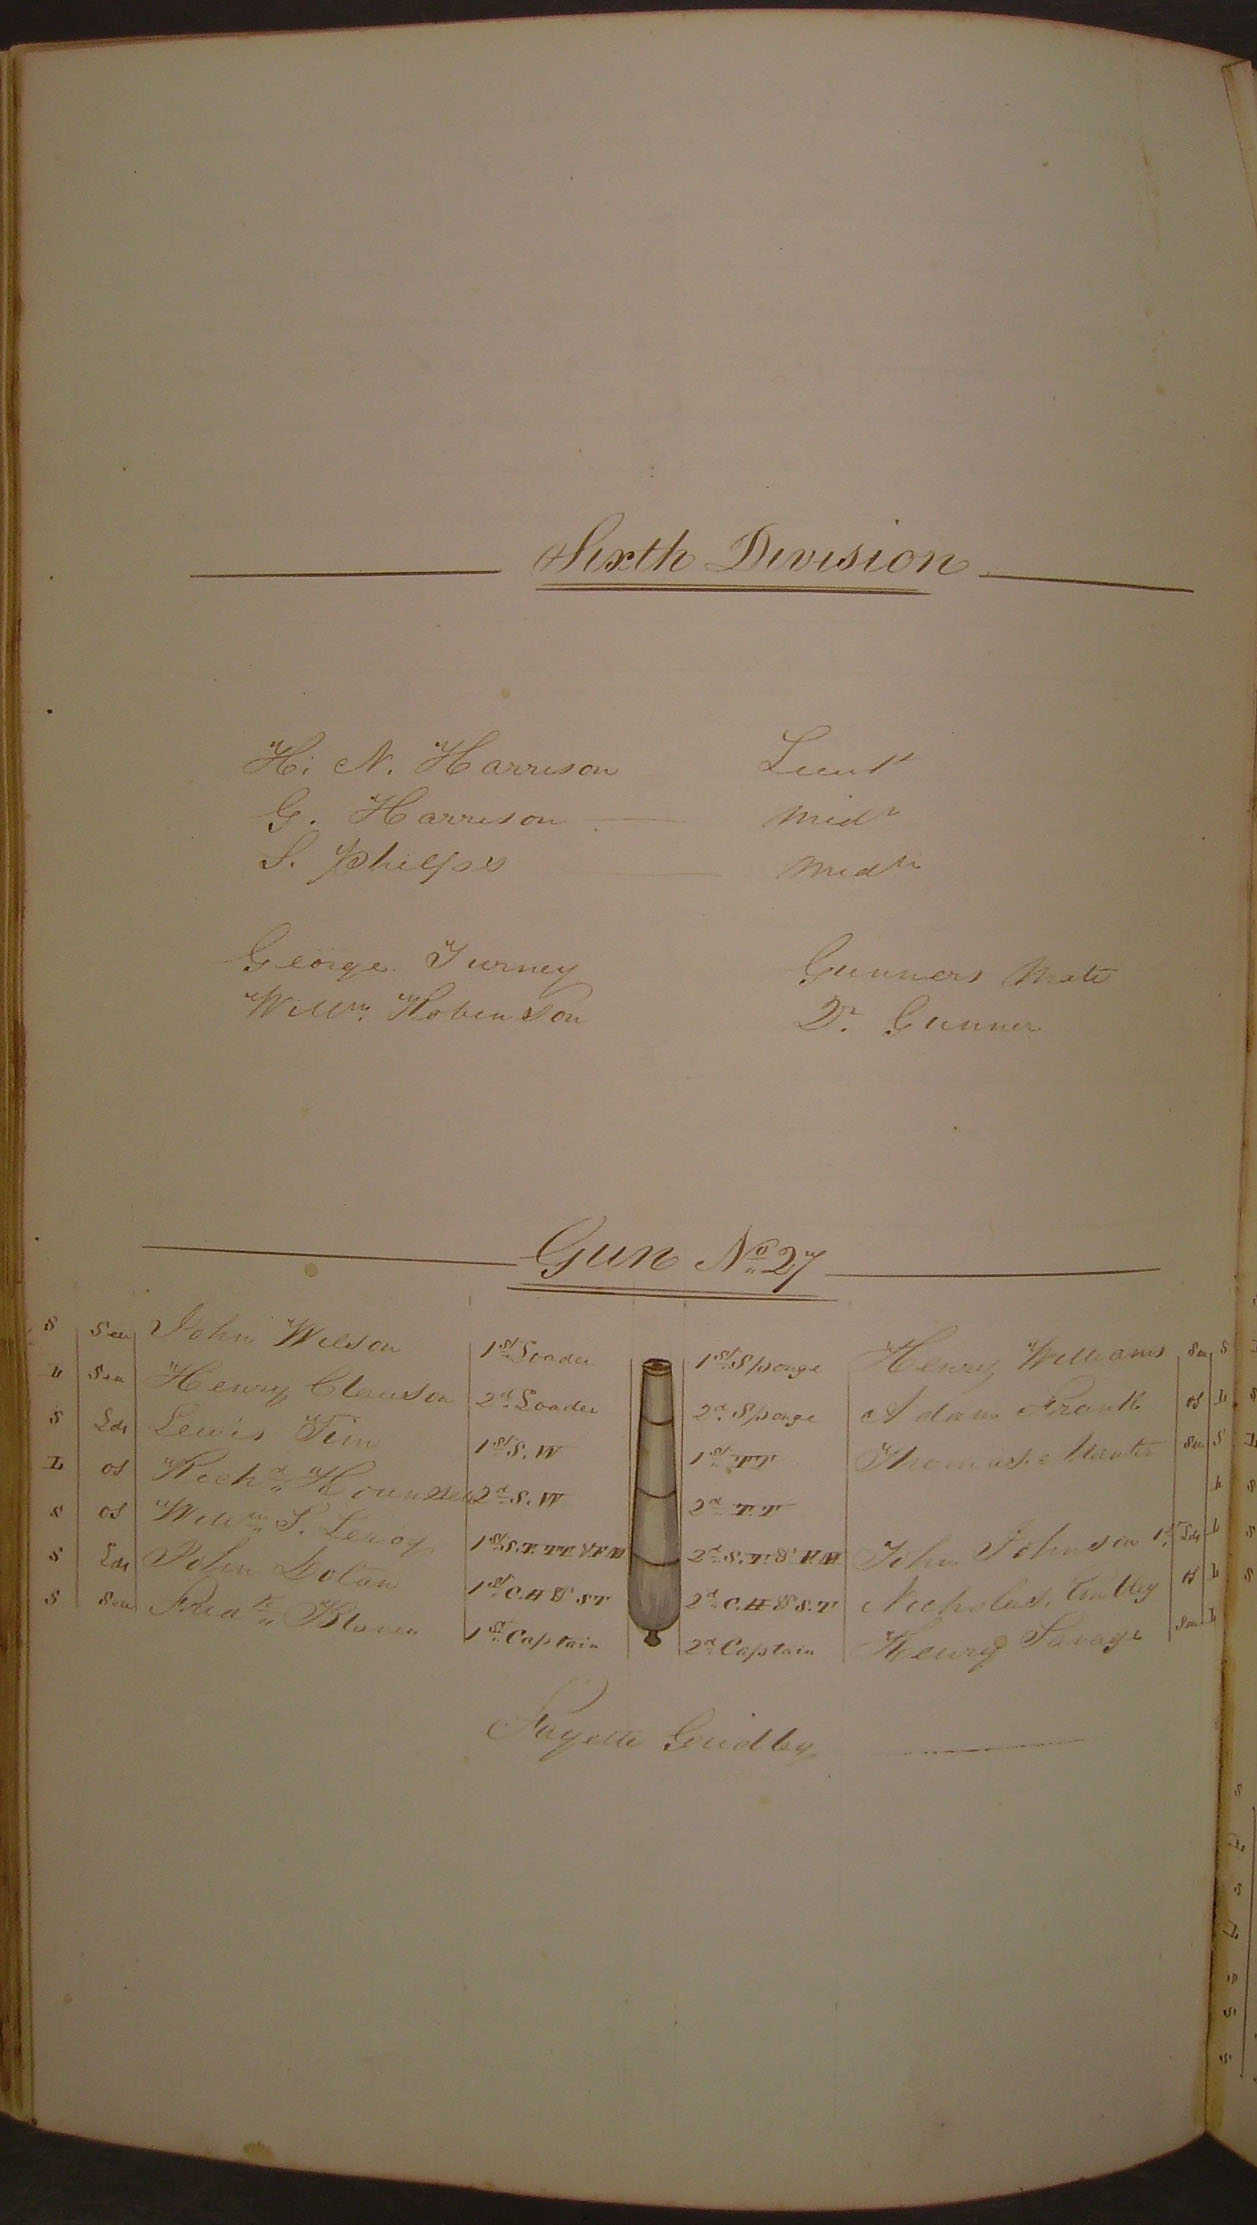 Sixth Division
H. N. Harrison Lieut
G. Harrison Midn
S. Phelps Midn
George Turney Gunners Mate
Willm. Robenson Qr. Gunner
Gun No. 27
S Sea John Wilson 1st Loader 1st Sponge Henry Williams Sea S
L Sea Henry Clauson 2d Loader 2d Sponge Adam Frank OS L
S Lds Lewis 1st S.W 1st T.T Thomas Sea S
L OS Richd 2d S.W 2d T.T L
S OS Willm S. Leroy 1st S.T. 2d S.T. & F M John Johnson 1st Lds L
S Lds John Dolan 1st C.H & S T 2d C.H & S.T Nicholas OS L
S Sea Fredk 1st Captain 2d Captain Henry Savage Sea L
Fayette Gridley